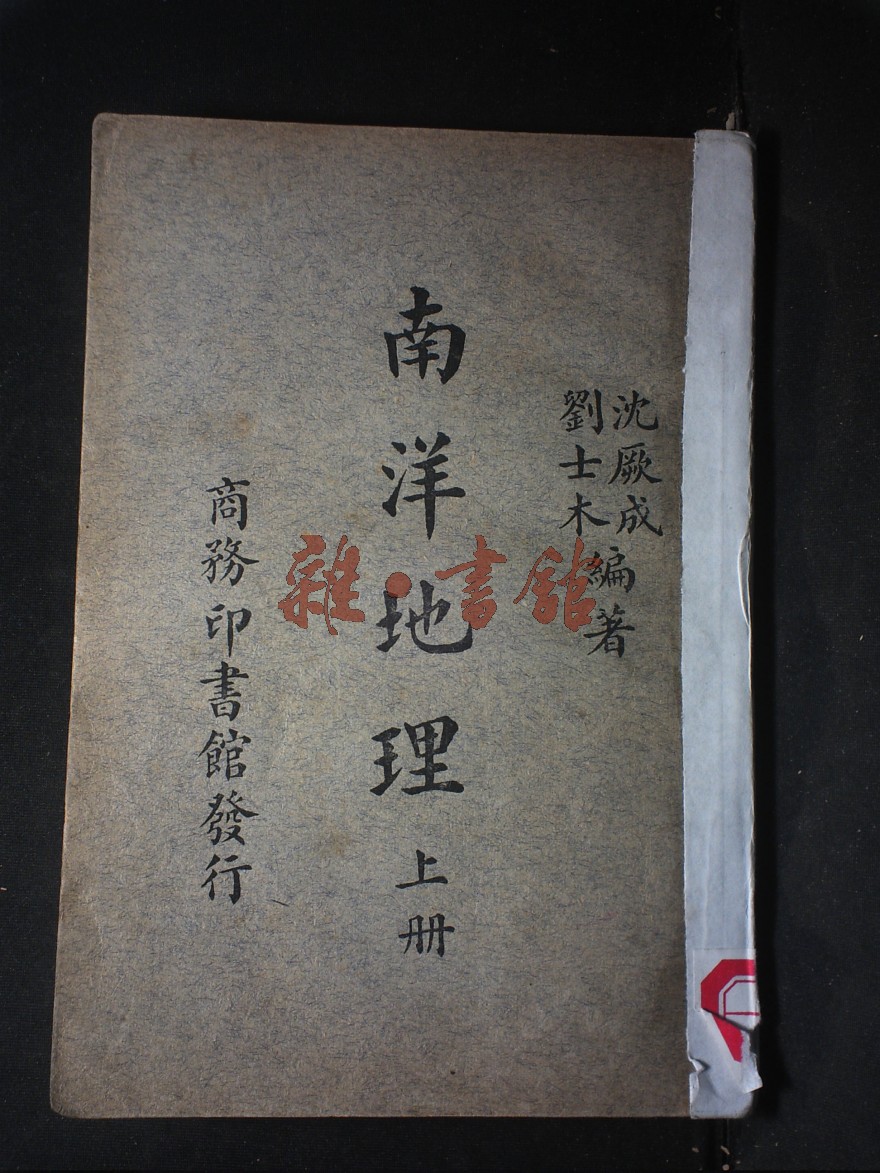 沈厥成
劉士木
編著
南洋地理 上册
商務印書館發行
雜·書館